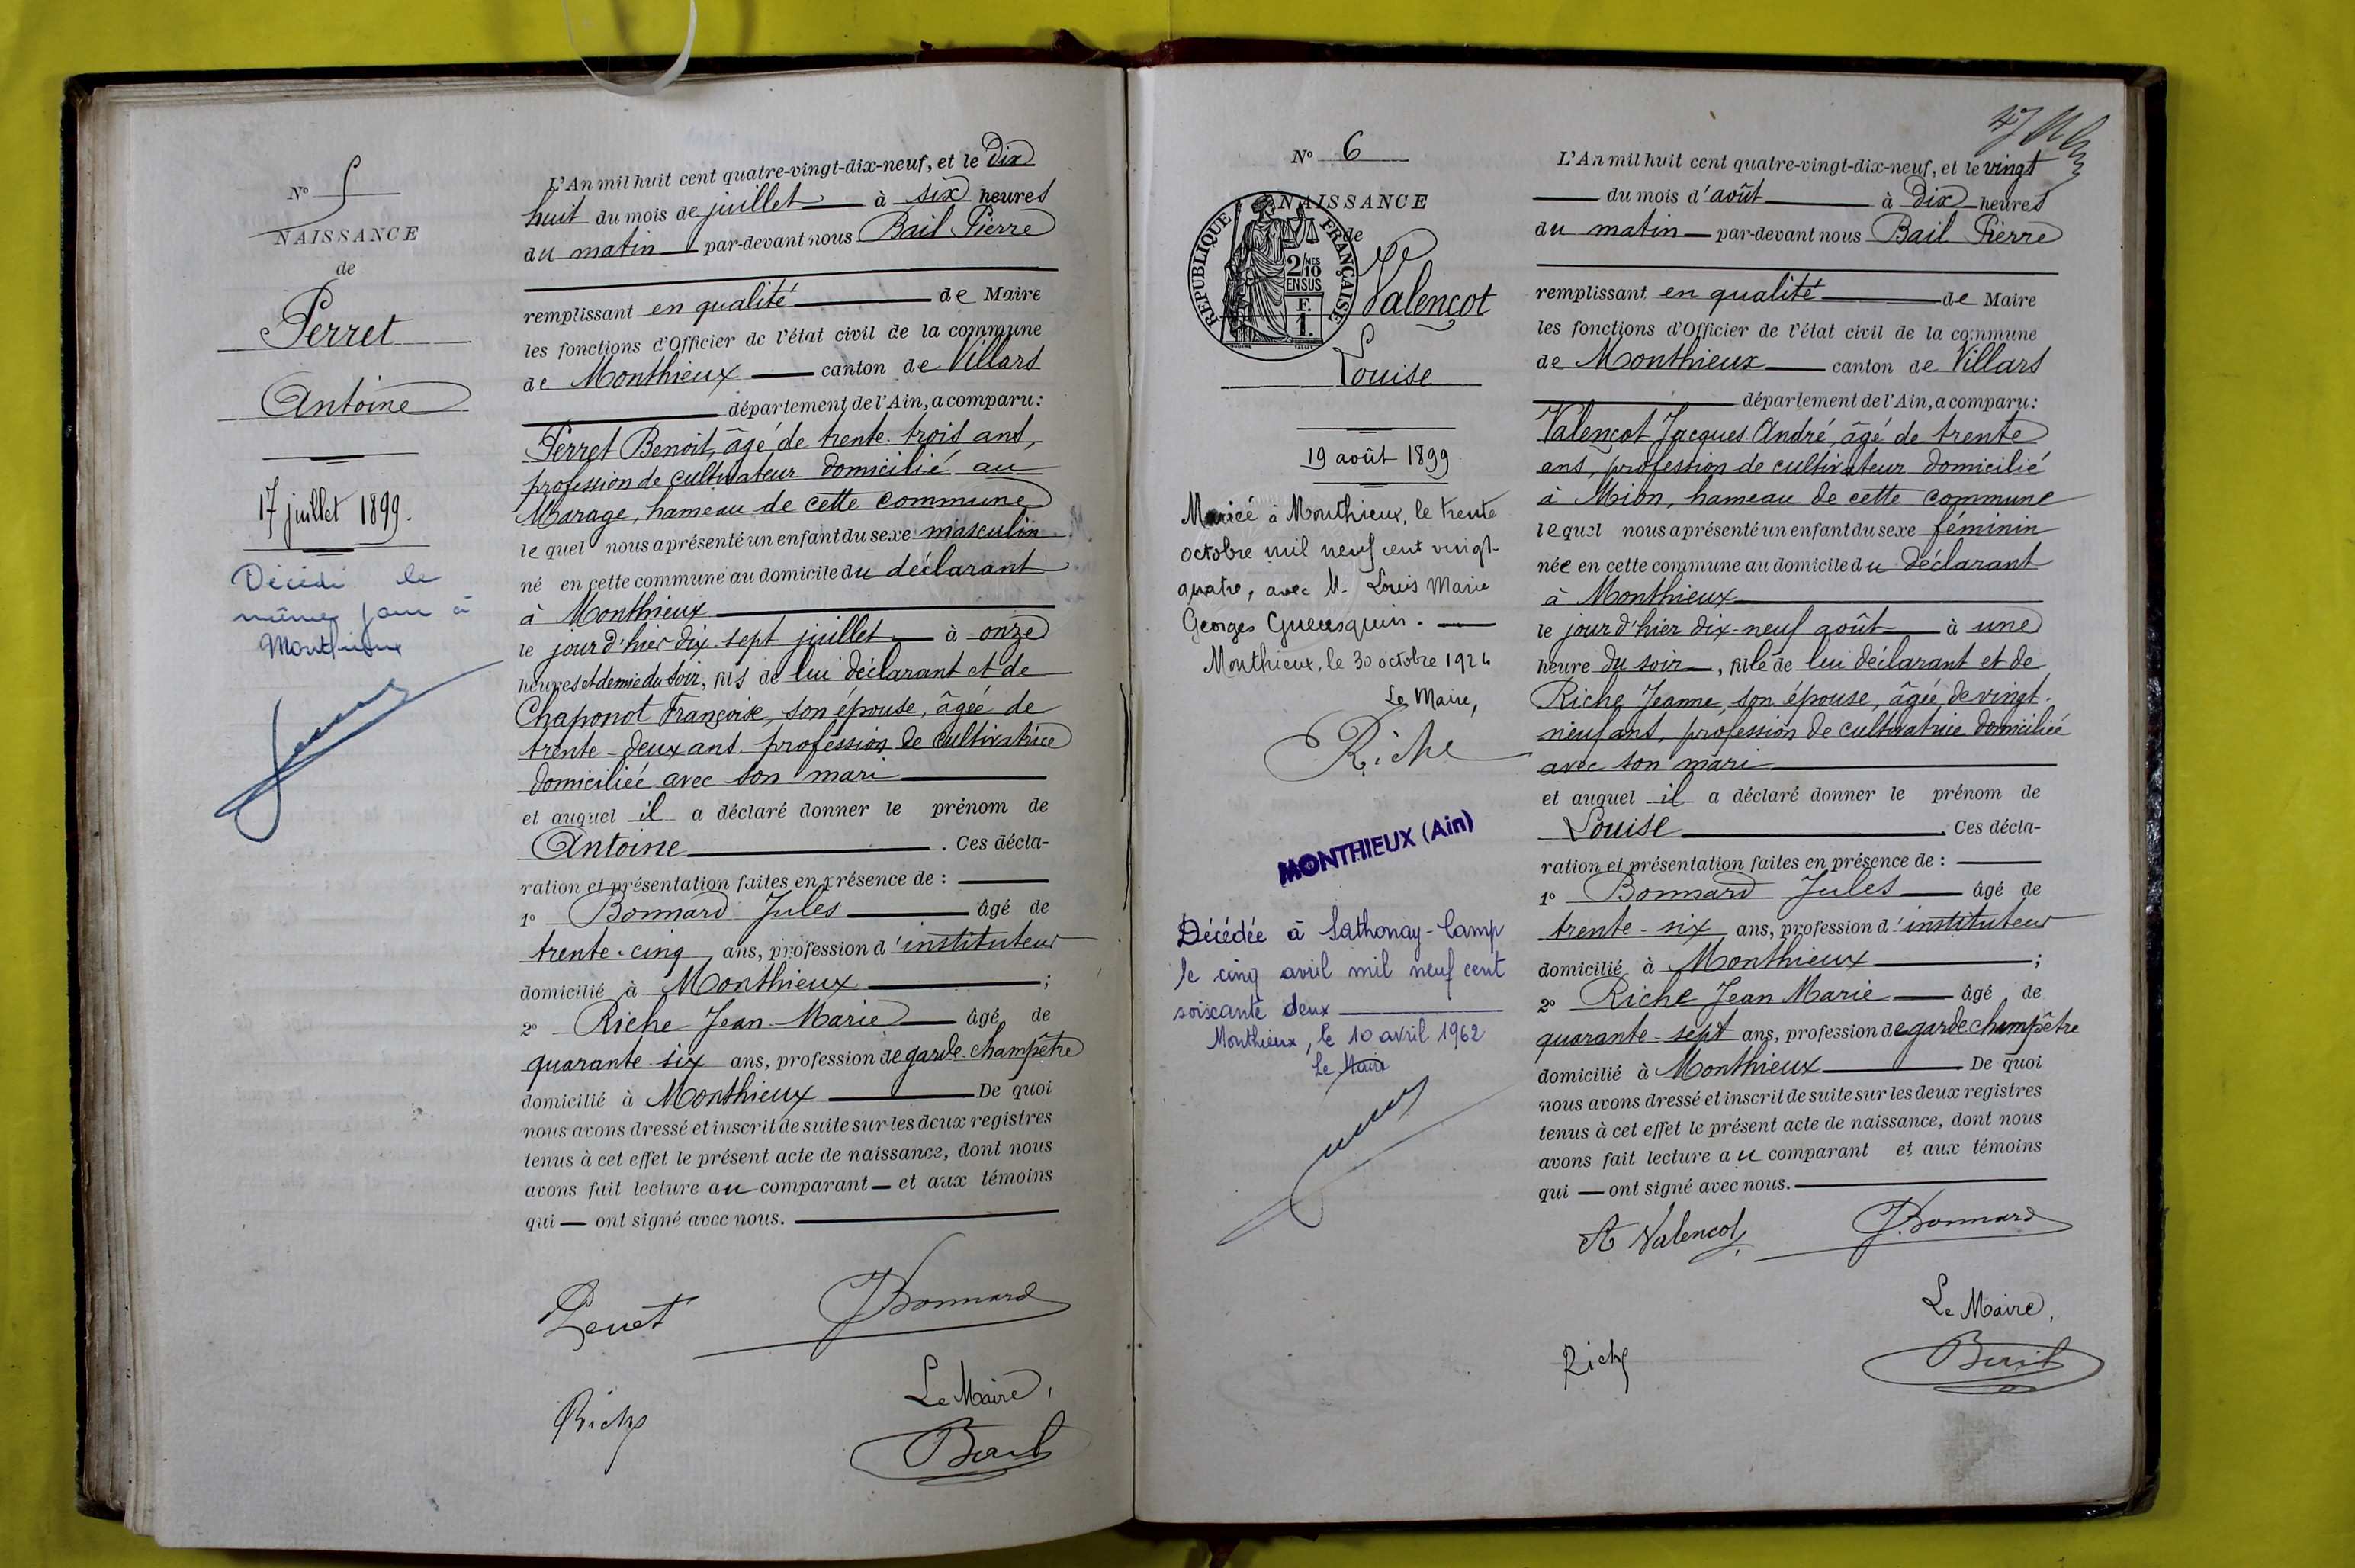 N° 5
NAISSANCE
de
Perret
Antoine
17 juillet 1899.
Décédé le
même jour à
Monthieux
L'An mil huit cent quatre-vingt-dix-neuf, et le dix
huit du mois de juillet à six heures
du matin par-devant nous Bail Pierre
remplissant en qualité de Maire
les fonctions d'Officier de l'état civil de la commune
de Monthieux canton de Villars
département de l'Ain, a comparu :
Perret Benoit, âgé de trente-trois ans,
profession de cultivateur domicilié au
Marage, hameau de cette commune
lequel nous a présenté un enfant du sexe masculin
né en cette commune au domicile du déclarant
à Monthieux
le jour d'hier dix-sept juillet à onze
heures et demie du soir, fils de lui déclarant et de
Chaponot Françoise, son épouse, âgée de
trente-deux ans profession de cultivatrice
domiciliée avec son mari
et auquel il a déclaré donner le prénom de
Antoine . Ces décla-
ration et présentation faites en présence de :
1° Bonnard Jules âgé de
trente-cinq ans, profession d'instituteur
domicilié à Monthieux ;
2° Riche Jean-Marie âgé de
quarante-six ans, profession de garde-champêtre
domicilié à Monthieux De quoi
nous avons dressé et inscrit de suite sur les deux registres
tenus à cet effet le présent acte de naissance, dont nous
avons fait lecture au comparant et aux témoins
qui ont signé avec nous.
Perret JBonnard
Le Maire,
Riche
Bail
N° 6
NAISSANCE
de
REPUBLIQUE FRANÇAISE
2/10 MES
EN SUS
F.
1.
Valençot
Louise
19 août 1899
Mariée à Monthieux, le trente
octobre mil neuf cent vingt-
quatre, avec M. Louis Marie
Georges Gueusquin.
Monthieux, le 30 octobre 1924
Le Maire,
Riche
MONTHIEUX (Ain)
Décédée à Sathonay-Camp
le cinq avril mil neuf cent
soixante deux
Monthieux, le 10 avril 1962
Le Maire
47
L'An mil huit cent quatre-vingt-dix-neuf, et le vingt
du mois d'août à dix heures
du matin par-devant nous Bail Pierre
remplissant en qualité de Maire
les fonctions d'Officier de l'état civil de la commune
de Monthieux canton de Villars
département de l'Ain, a comparu :
Valençot Jacques André, âgé de trente
ans, profession de cultivateur domicilié
à Mion, hameau de cette commune
lequel nous a présenté un enfant du sexe féminin
née en cette commune au domicile du déclarant
à Monthieux
le jour d'hier dix-neuf août à une
heure du soir, fille de lui déclarant et de
Riche Jeanne, son épouse, âgée de vingt-
neuf ans, profession de cultivatrice domiciliée
avec son mari
et auquel il a déclaré donner le prénom de
Louise . Ces décla-
ration et présentation faites en présence de :
1° Bonnard Jules âgé de
trente-six ans, profession d'instituteur
domicilié à Monthieux ;
2° Riche Jean Marie âgé de
quarante-sept ans, profession de garde champêtre
domicilié à Monthieux De quoi
nous avons dressé et inscrit de suite sur les deux registres
tenus à cet effet le présent acte de naissance, dont nous
avons fait lecture au comparant et aux témoins
qui ont signé avec nous.
A Valençot JBonnard
Le Maire,
Riche
Bail